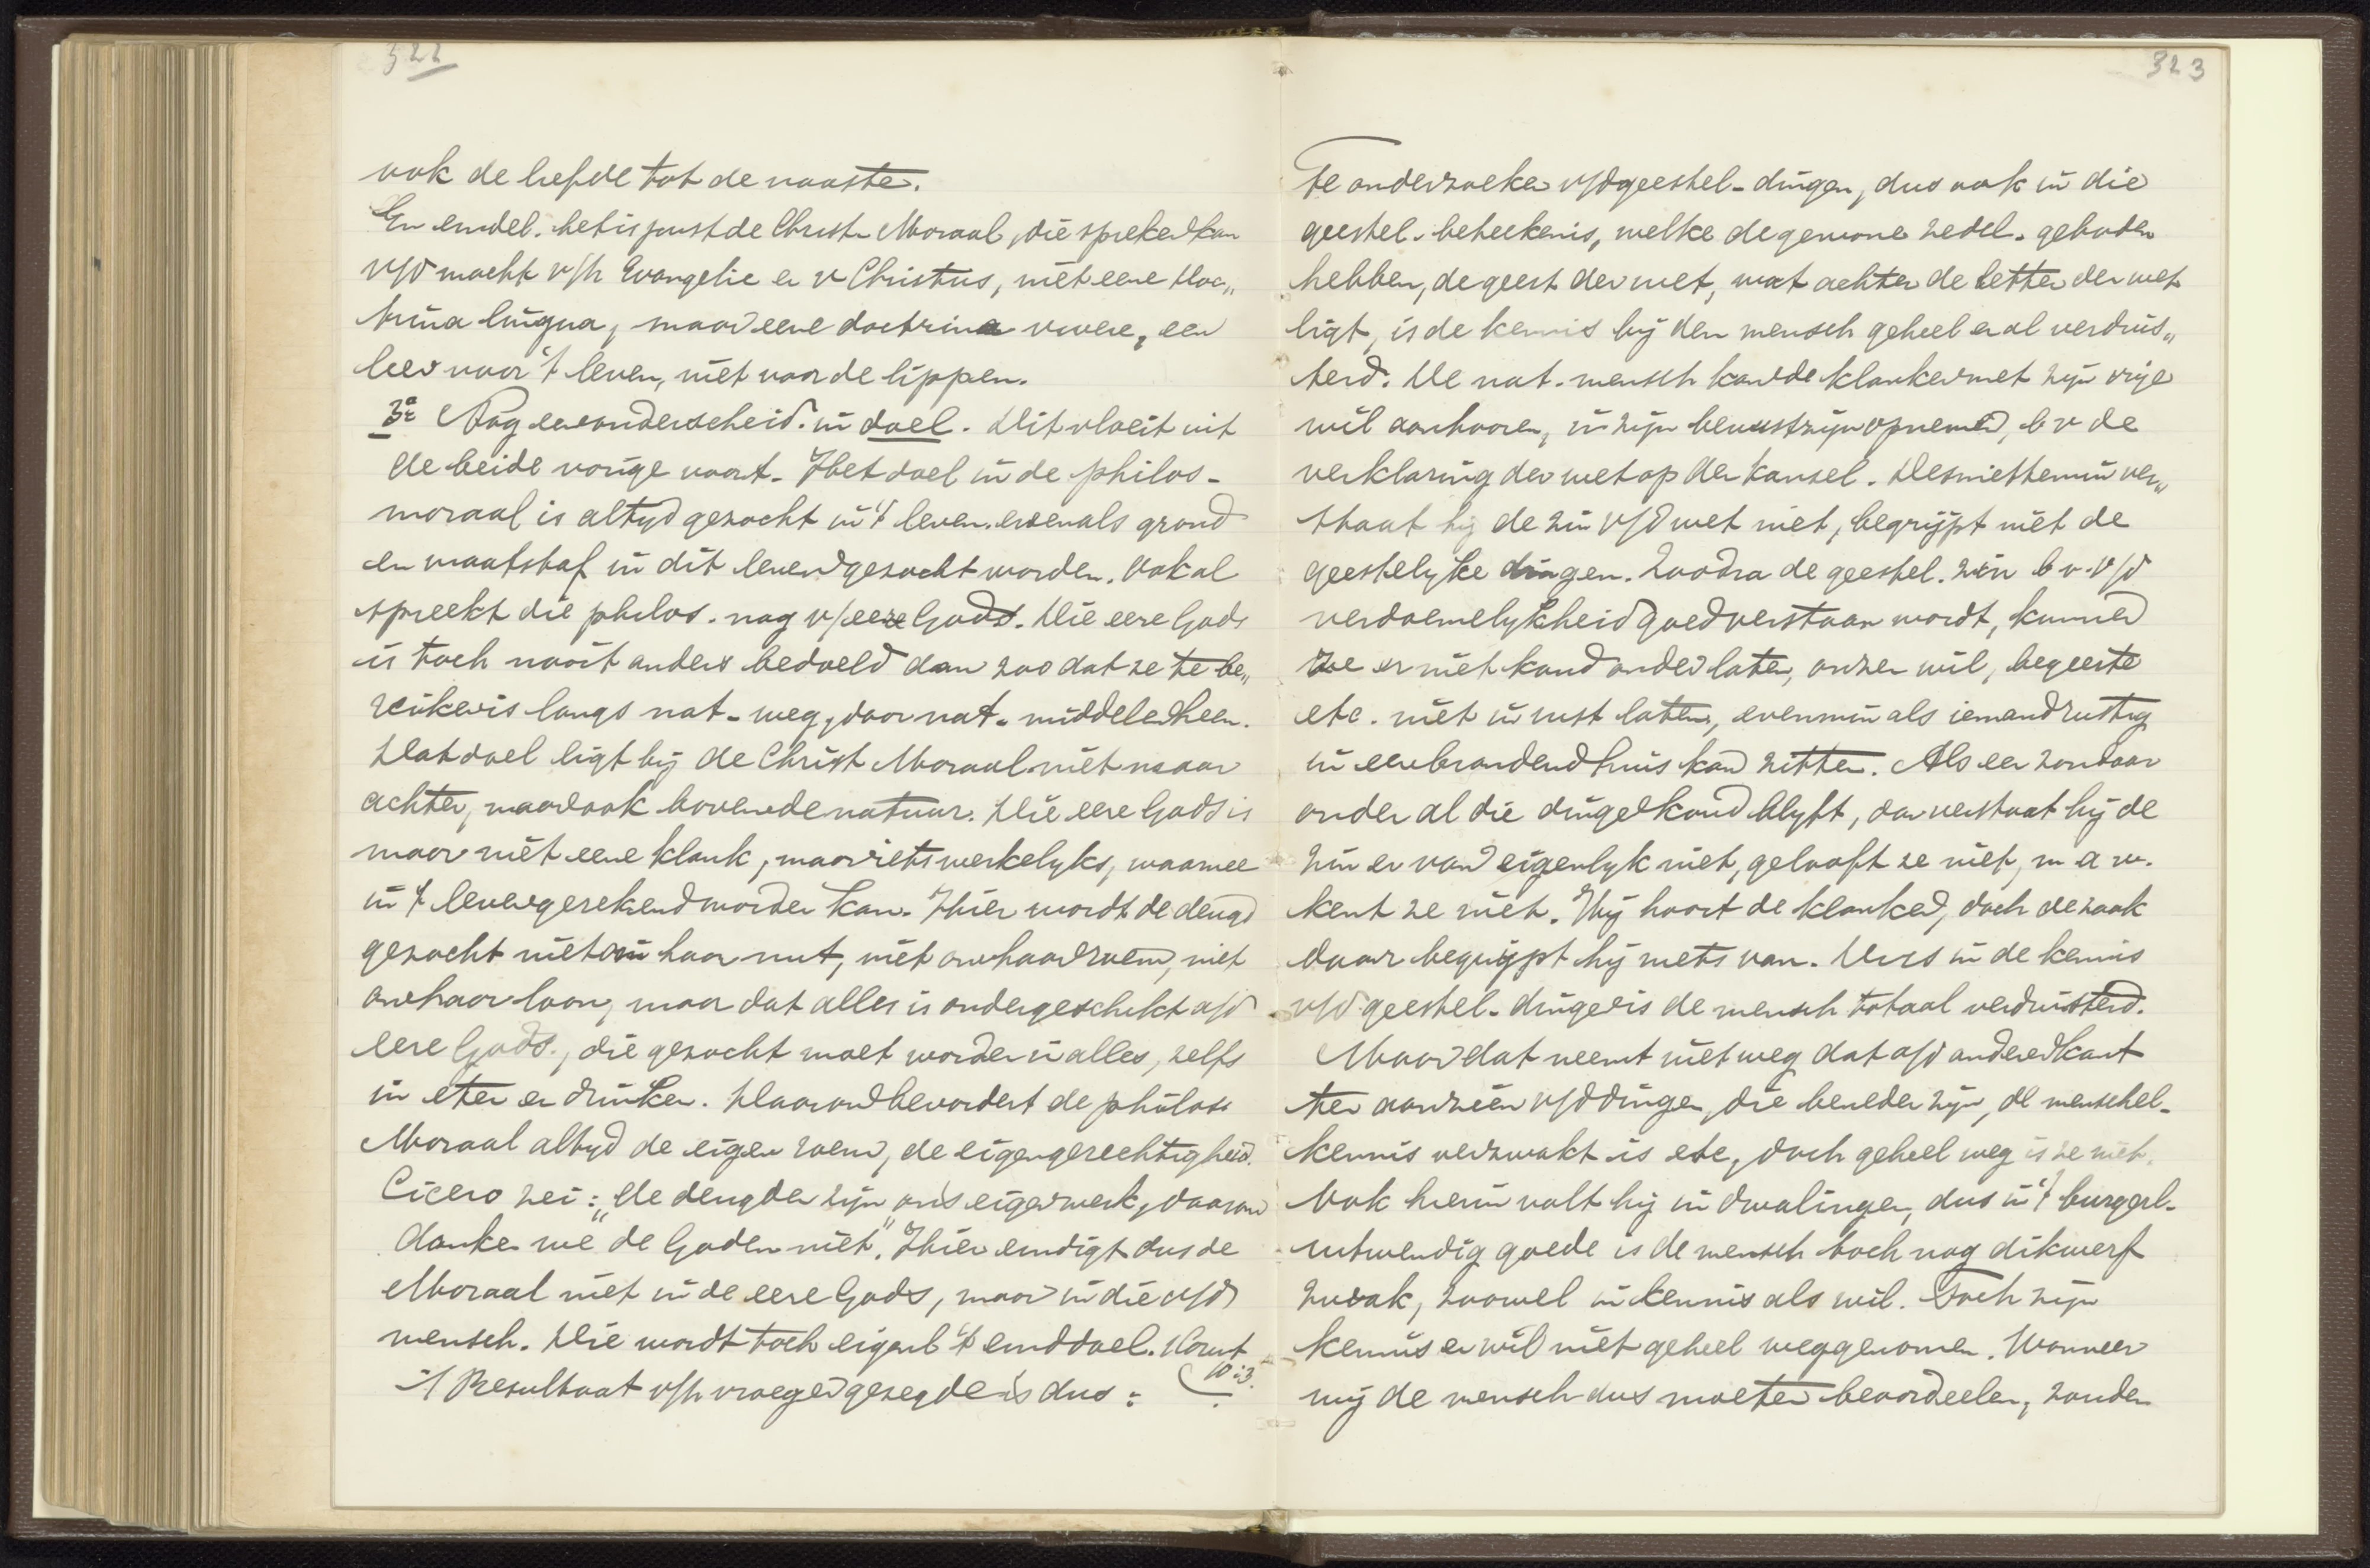 322
ook de liefde tot de naaste.
En eindel. het is juist de Christ. Moraal, die spreken kan
v/d macht v/h Evangelie en v Christus, niet eene doc„
trina lingua, maar eene doctrina vivere, een
leer voor 't leven, niet voor de lippen.
3e Nog een onderscheid. in doel. Dit vloeit uit
de beide vorige voort. Het doel in de philos-
moraal is altyd gezocht in 't leven, evenals grond
en maatstaf in dit leven gezocht worden. Ook al
spreekt die philos. nog v/eere Gods. Die eere Gods
is toch nooit anders bedoeld dan zoo dat ze te be„
reiken is langs nat- weg, door nat. middelen heen.
Dat doel ligt bij de Christ Moraal niet maar
achter, maar ook boven de natuur. Die eere Gods is
maar niet eene klank, maar iets werkelyks, waarmee
in 't leven gerekend worden kan. Hier wordt de deugd
gezocht niet om haar nut, niet om haar roem, niet
om haar loon, maar dat alles is ondergeschikt a/d
eere Gods., die gezocht moet worden in alles, zelfs
in eten en drinken. Daarom bevordert de philos
Moraal altyd de eigen roem, de eigengerechtigheid.
Cicero zei: „de deugden zijn ons eigen werk, daarom
danken we de Goden niet". Hier eindigt dus de
Moraal niet in de eere Gods, maar in die v/d
mensch. Die wordt toch eigenl 't einddoel.
10:3.
't Resultaat v/h vroeger gezegde is dus:
323
Te onderzoeken v/d geestel- dingen, dus ook in die
geestel. beteekenis, welke de gewone zedel. geboden
hebben, de geest der wet, wat achter de letter der wet
ligt, is de kennis bij den mensch geheel en al verduis„
terd. De nat. mensch kan de klanken met zijn vrije
wil aanhooren, in zijn bewustzijn opnemen, b v de
verklaring der wet op den kansel. Desniettemin ver„
staat hij de zin v/d wet niet, begrijpt niet de
geestelyke dingen. Zoodra de geestel. zin b v. v/d
verdoemelykheid goed verstaan wordt, kunnen
ze er niet koud onder laten, onzen wil, begeerte
etc. niet in rust laten, evenmin als iemand rustig
in een brandend huis kan zitten. Als een zondaar
onder al die dingen koud blyft, dan verstaat hij de
zin er van eigenlyk niet, gelooft ze niet, m a w.
kent ze niet. Hij hoort de klanken, doch de zaak
daar begrijpt hij niets van. Dus in de kennis
v/d geestel- dingen is de mensch totaal verduisterd.
Maar dat neemt niet weg dat a/d anderen kant
ten aanzien v/d dingen, die beneden zijn, de menschel-
kennis verzwakt is etc, doch geheel weg is ze niet.
Ook hierin valt hij in dwalingen, dus in 't burgerl-
uitwendig goede is de mensch toch nog dikwerf
zwak, zoowel in kennis als wil. Toch zijn
kennis en wil niet geheel weggenomen. Wanneer
wij de mensch dus moeten beoordeelen, zonder